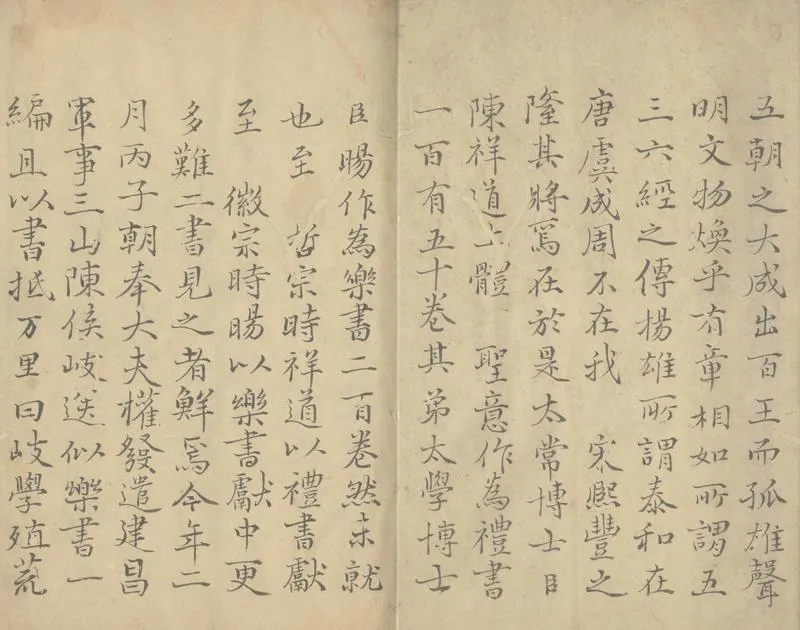 五朝之大成出百王而孤雄聲
明文物煥乎有章相如所謂五
三六經之傳揚雄所謂泰和在
唐虞成周不在我 宋熙豐之
隆其將焉在於是太常博士臣
陳祥道上體 聖意作為禮書
一百有五十卷其弟太學博士
臣暘作為樂書二百卷然未就
也至 哲宗時祥道以禮書獻
至 徽宗時暘以樂書獻中更
多難二書見之者鮮焉今年二
月丙子朝奉大夫權發遣建昌
軍事三山陳侯岐送似樂書一
編且以書抵万里曰岐學殖荒